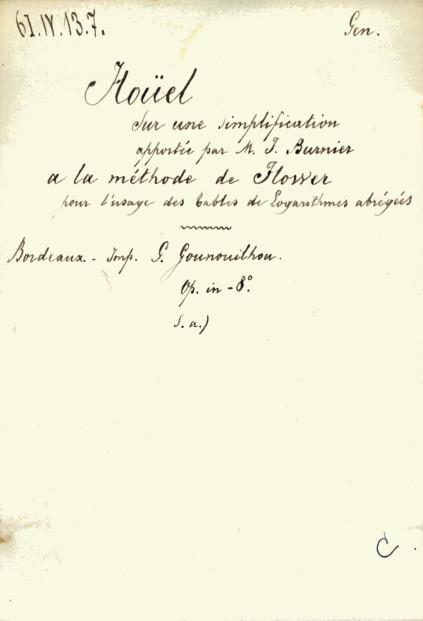 61.IV.13.7.
Gen.
Hoüel
Sur une simplification
apportée par M. J. Burnier
a la méthode de Flower
pour l'usage des Tables de Logarithmes abrégées
Bordeaux. - Imp. G. Gounouilhou.
Op. in - 8°.
S. a.)
C